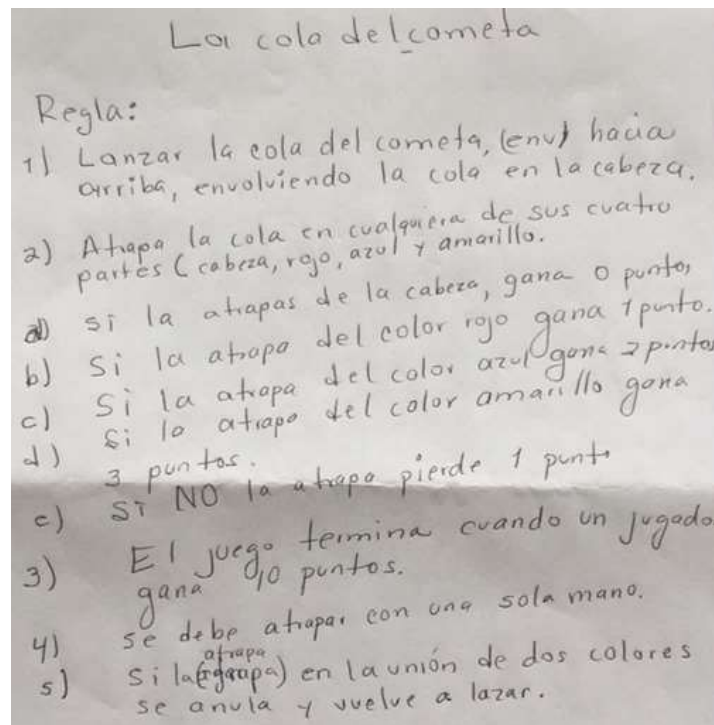 La cola del cometa
Regla:
1) Lanzar la cola del cometa, (env) hacia
arriba, envolviendo la cola en la cabeza.
2) Atrapa la cola en cualquiera de sus cuatro
partes (cabeza, rojo, azul y amarillo.
a) si la atrapas de la cabeza, gana 0 puntos
b) Si la atrapa del color rojo gana 1 punto.
c) Si la atrapa del color azul gana 2 puntos
d) Si la atrapa del color amarillo gana
3 puntos.
e) Si NO la atrapa pierde 1 punto
3) El juego termina cuando un jugado
gana 10 puntos.
4) se debe atrapar con una sola mano.
atrapa
5) Si la () en la unión de dos colores
se anula y vuelve a lazar.